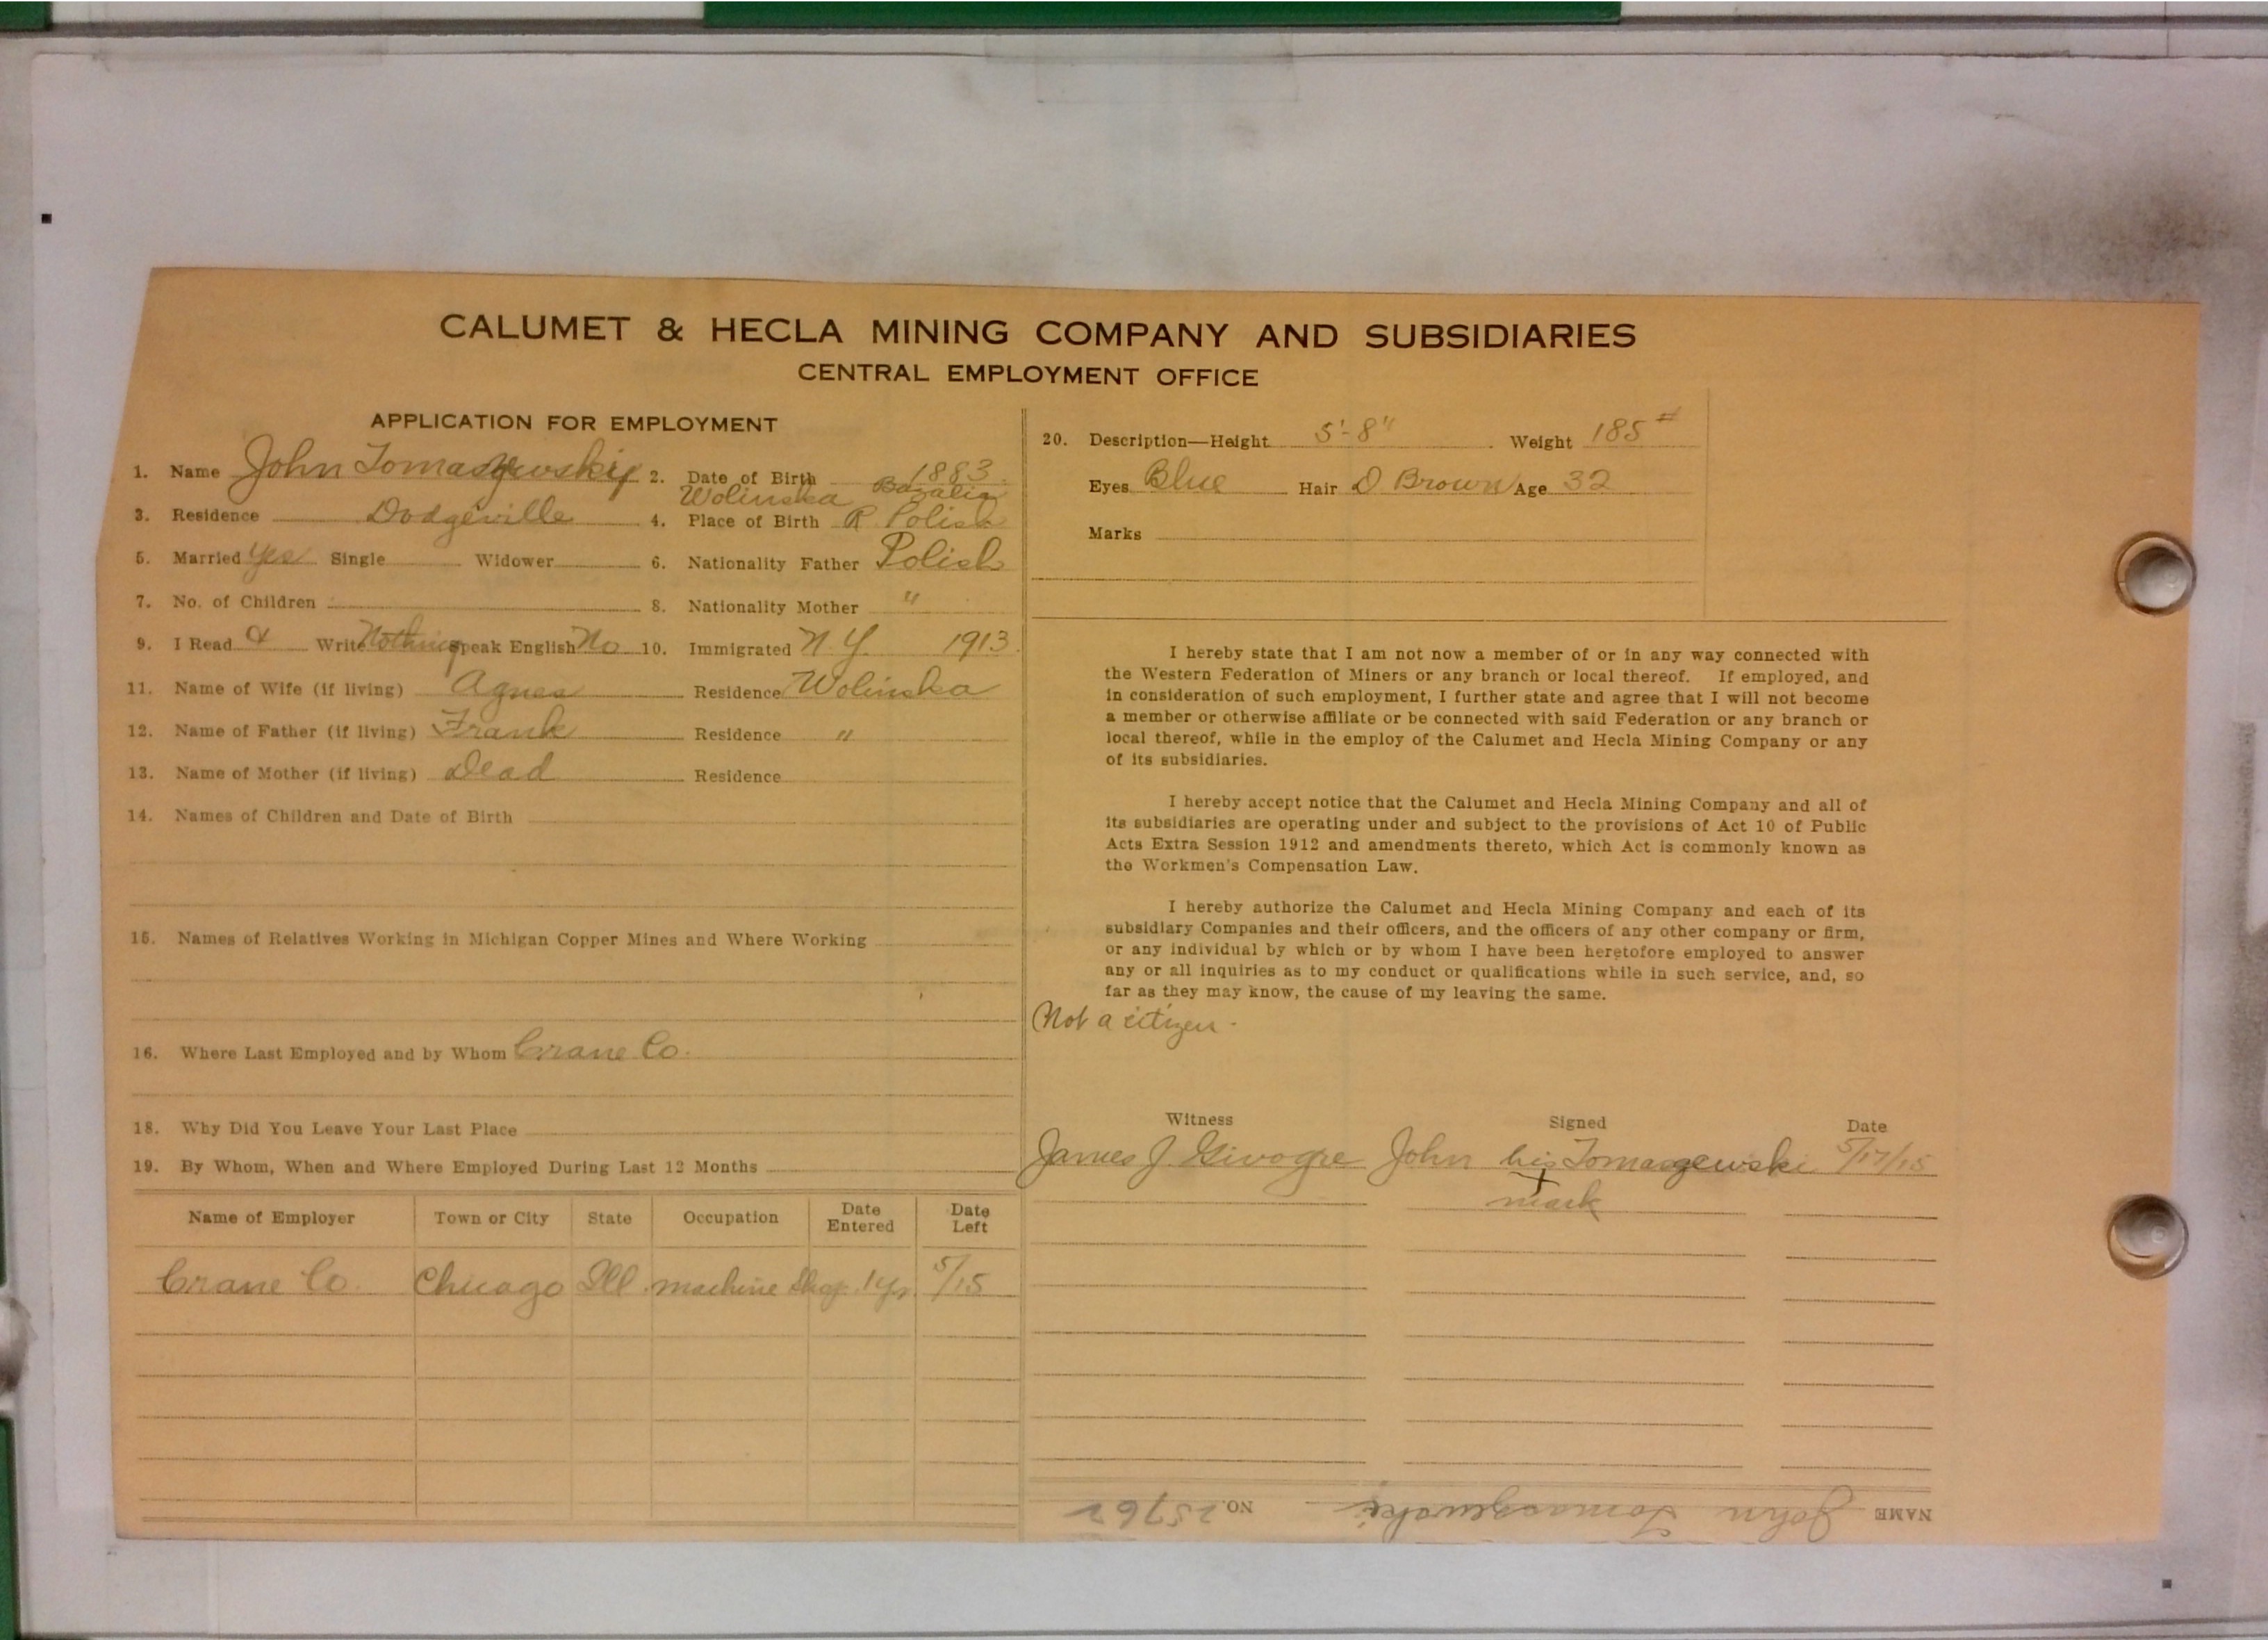 CALUMET & HECLA MINING COMPANY AND SUBSIDIARIES
CENTRAL EMPLOYMENT OFFICE
APPLICATION FOR EMPLOYMENT
1. Name John 2. Date of Birth 1883
Wolinska
3. Residence Dodgeville 4. Place of Birth R. Polish
5. Married yes Single Widower 6. Nationality Father Polish
7. No. of Children 8. Nationality Mother "
9. I Read & Write Nothing Speak English No 10. Immigrated N. Y. 1913
11. Name of Wife (if living) Agnes Residence Wolinska
12. Name of Father (if living) Frank Residence "
13. Name of Mother (if living) Dead Residence
14. Names of Children and Date of Birth
15. Names of Relatives Working in Michigan Copper Mines and Where Working
16. Where Last Employed and by Whom Crane Co.
18. Why Did You Leave Your Last Place
19. By Whom, When and Where Employed During Last 12 Months
Name of Employer Town or City State Occupation Date Entered Date Left
Crane Co. Chicago Ill. machine Shop 1 yr. 5/15
20. Description—Height 5'-8" Weight 185#
Eyes Blue Hair D Brown Age 32
Marks
I hereby state that I am not now a member of or in any way connected with
the Western Federation of Miners or any branch or local thereof. If employed, and
in consideration of such employment, I further state and agree that I will not become
a member or otherwise affiliate or be connected with said Federation or any branch or
local thereof, while in the employ of the Calumet and Hecla Mining Company or any
of its subsidiaries.
I hereby accept notice that the Calumet and Hecla Mining Company and all of
its subsidiaries are operating under and subject to the provisions of Act 10 of Public
Acts Extra Session 1912 and amendments thereto, which Act is commonly known as
the Workmen's Compensation Law.
I hereby authorize the Calumet and Hecla Mining Company and each of its
subsidiary Companies and their officers, and the officers of any other company or firm,
or any individual by which or by whom I have been heretofore employed to answer
any or all inquiries as to my conduct or qualifications while in such service, and, so
far as they may know, the cause of my leaving the same.
Not a citizen.
Witness Signed Date
James J. John his Tomaszewski 5/17/15
mark
NAME John Tomaszewski NO. 25762